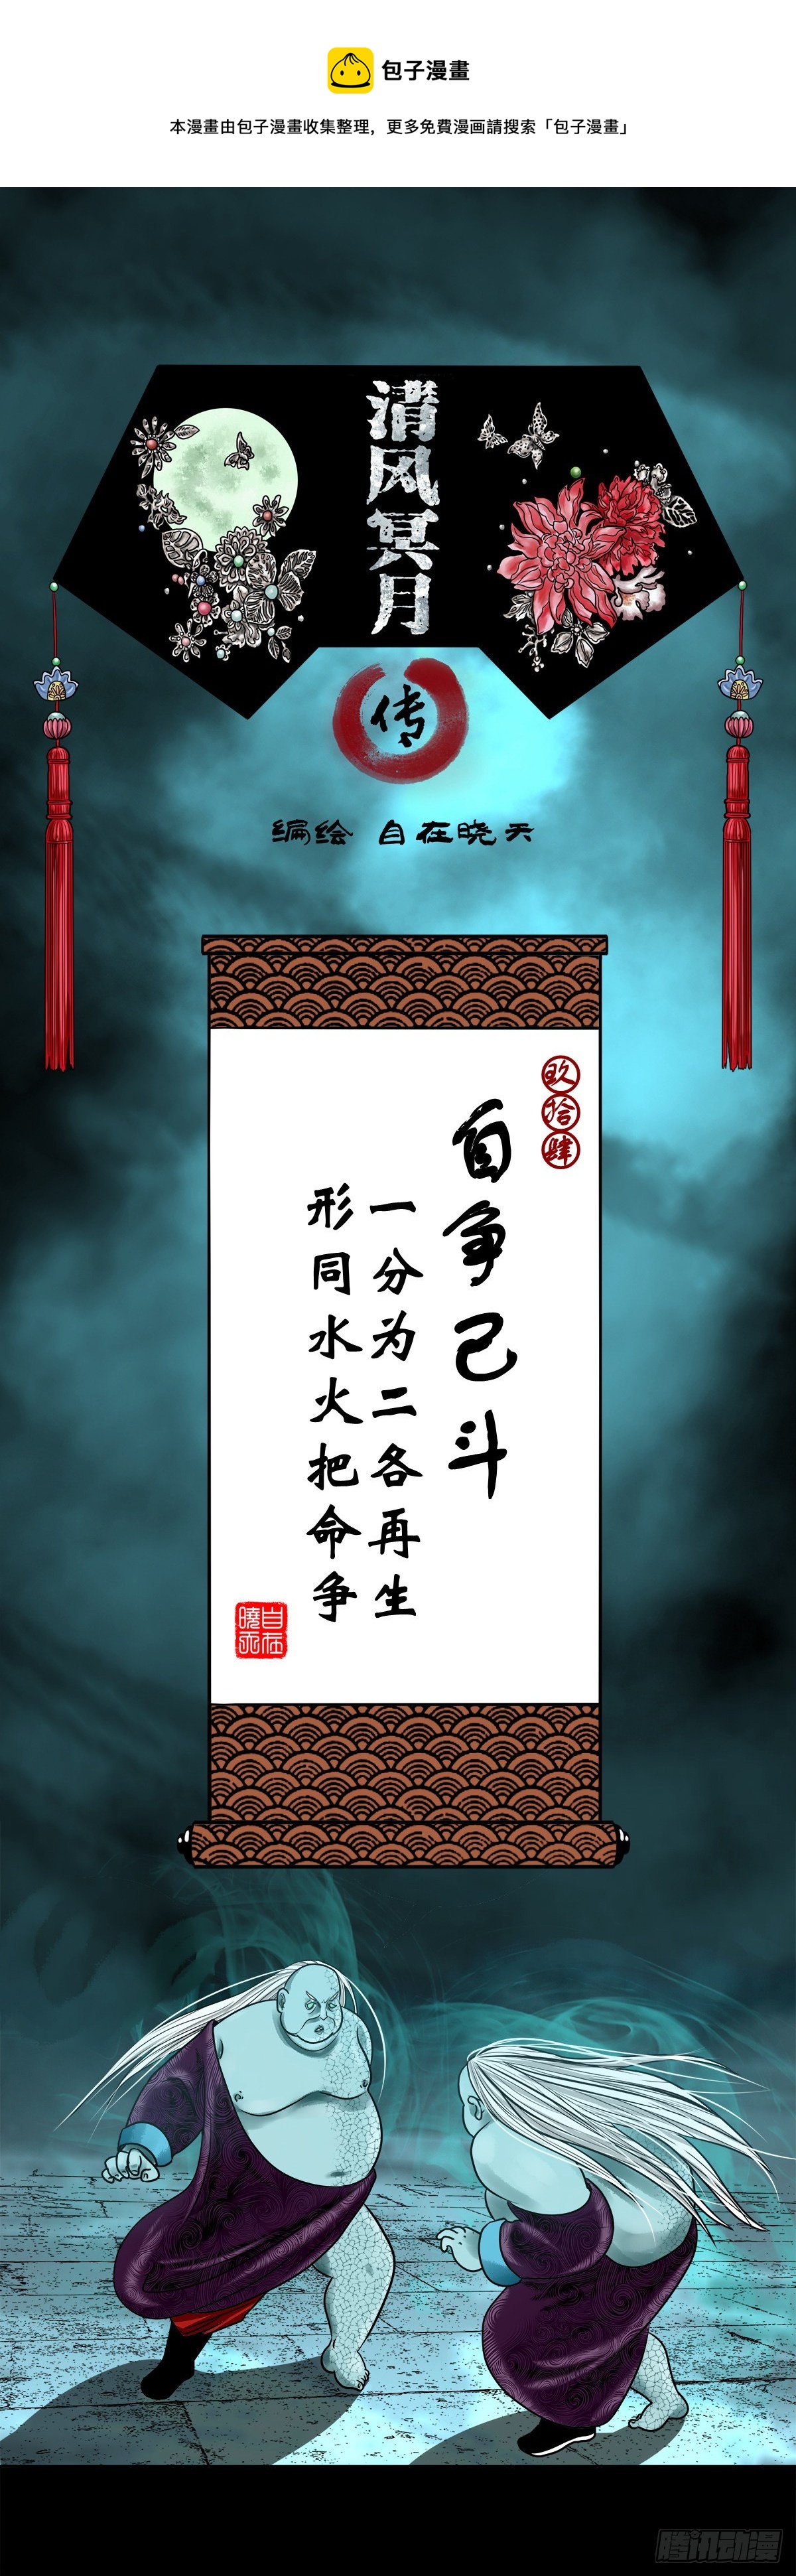 包子漫畫
本漫畫由包子漫畫收集整理，更多免費漫画請搜索「包子漫畫」
清风冥月
传
编绘 自在晓天
玖拾肆
自争己斗
一分为二各再生
形同水火把命争
自在
曉天
腾讯动漫